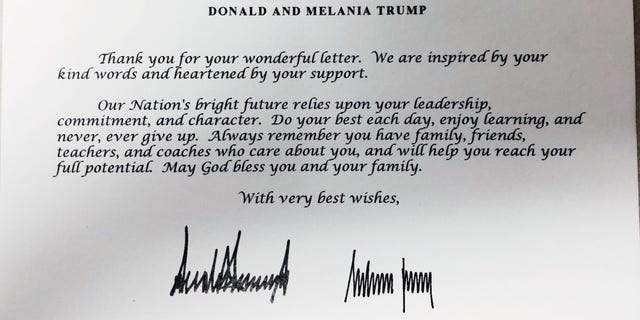 DONALD AND MELANIA TRUMP
Thank you for your wonderful letter. We are inspired by your
kind words and heartened by your support.
Our Nation's bright future relies upon your leadership,
commitment, and character. Do your best each day, enjoy learning, and
never, ever give up. Always remember you have family, friends,
teachers, and coaches who care about you, and will help you reach your
full potential. May God bless you and your family.
With very best wishes,